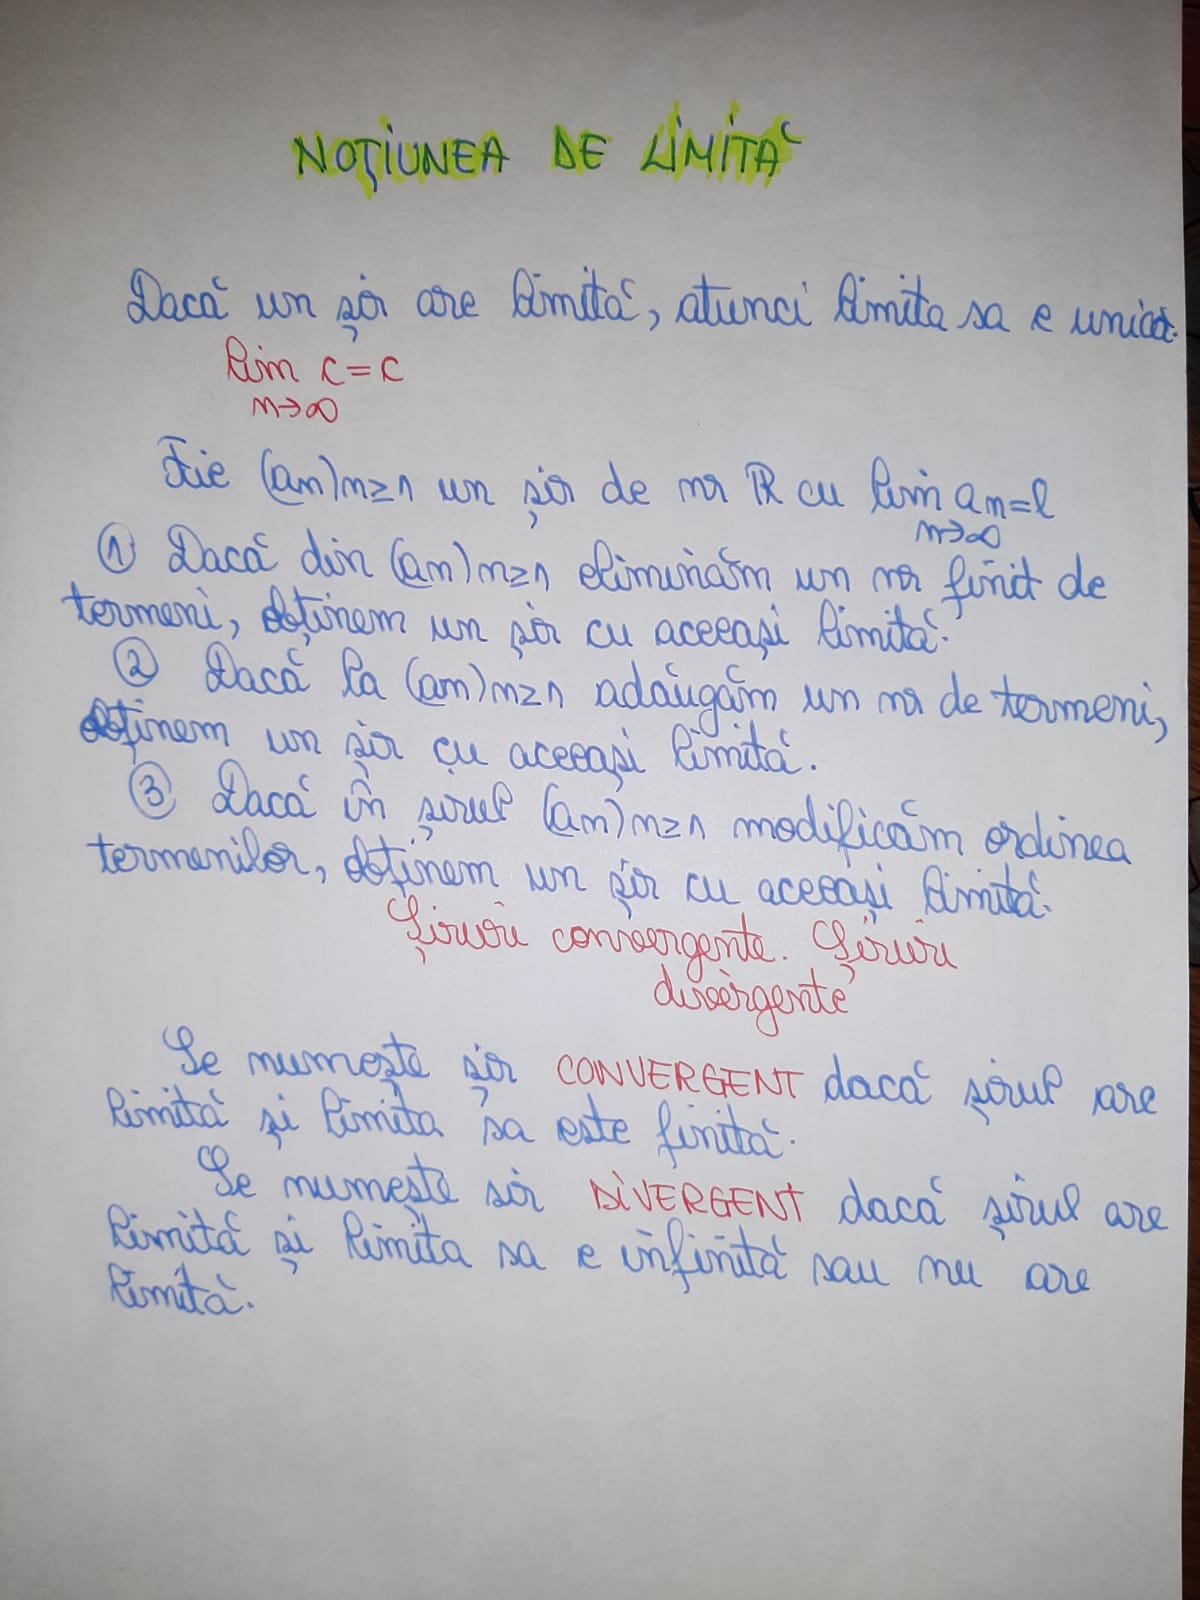 NOȚIUNEA DE LIMITĂ
Dacă un șir are limită, atunci limita sa e unică.
lim c = c
n→∞
Fie (an)n≥1 un șir de nr ℝ cu lim an = l
n→∞
① Dacă din (an)n≥1 eliminăm un nr finit de
termeni, obținem un șir cu aceeași limită.
② Dacă la (an)n≥1 adăugăm un nr de termeni,
obținem un șir cu aceeași limită.
③ Dacă în șirul (an)n≥1 modificăm ordinea
termenilor, obținem un șir cu aceeași limită.
Șiruri convergente. Șiruri
divergente
Se numește șir CONVERGENT dacă șirul are
limită și limita sa este finită.
Se numește șir DIVERGENT dacă șirul are
limită și limita sa e infinită sau nu are
limită.